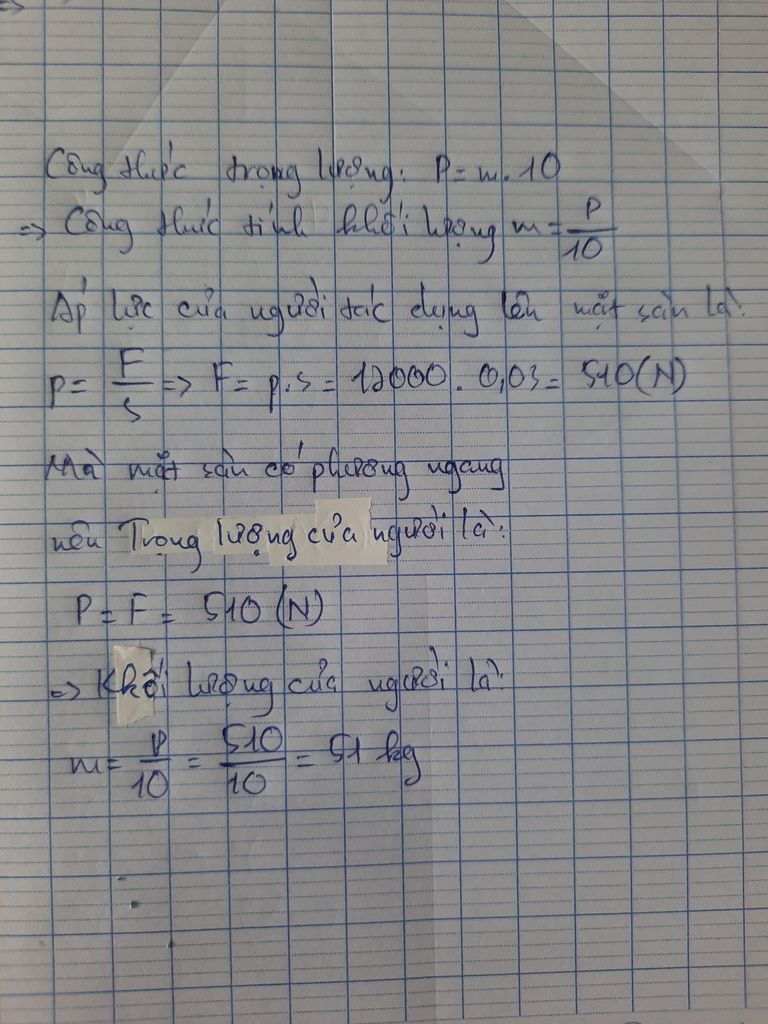 Công thức trọng lượng: P = m. 10
=> Công thức tính khối lượng m = P/10
Áp lực của người tác dụng lên mặt sàn là:
p = F/s => F = p.s = 17000 . 0,03 = 510 (N)
Mà mặt sàn có phương ngang
nên Trọng lượng của người là:
P = F = 510 (N)
=> Khối lượng của người là:
m = P/10 = 510/10 = 51 kg